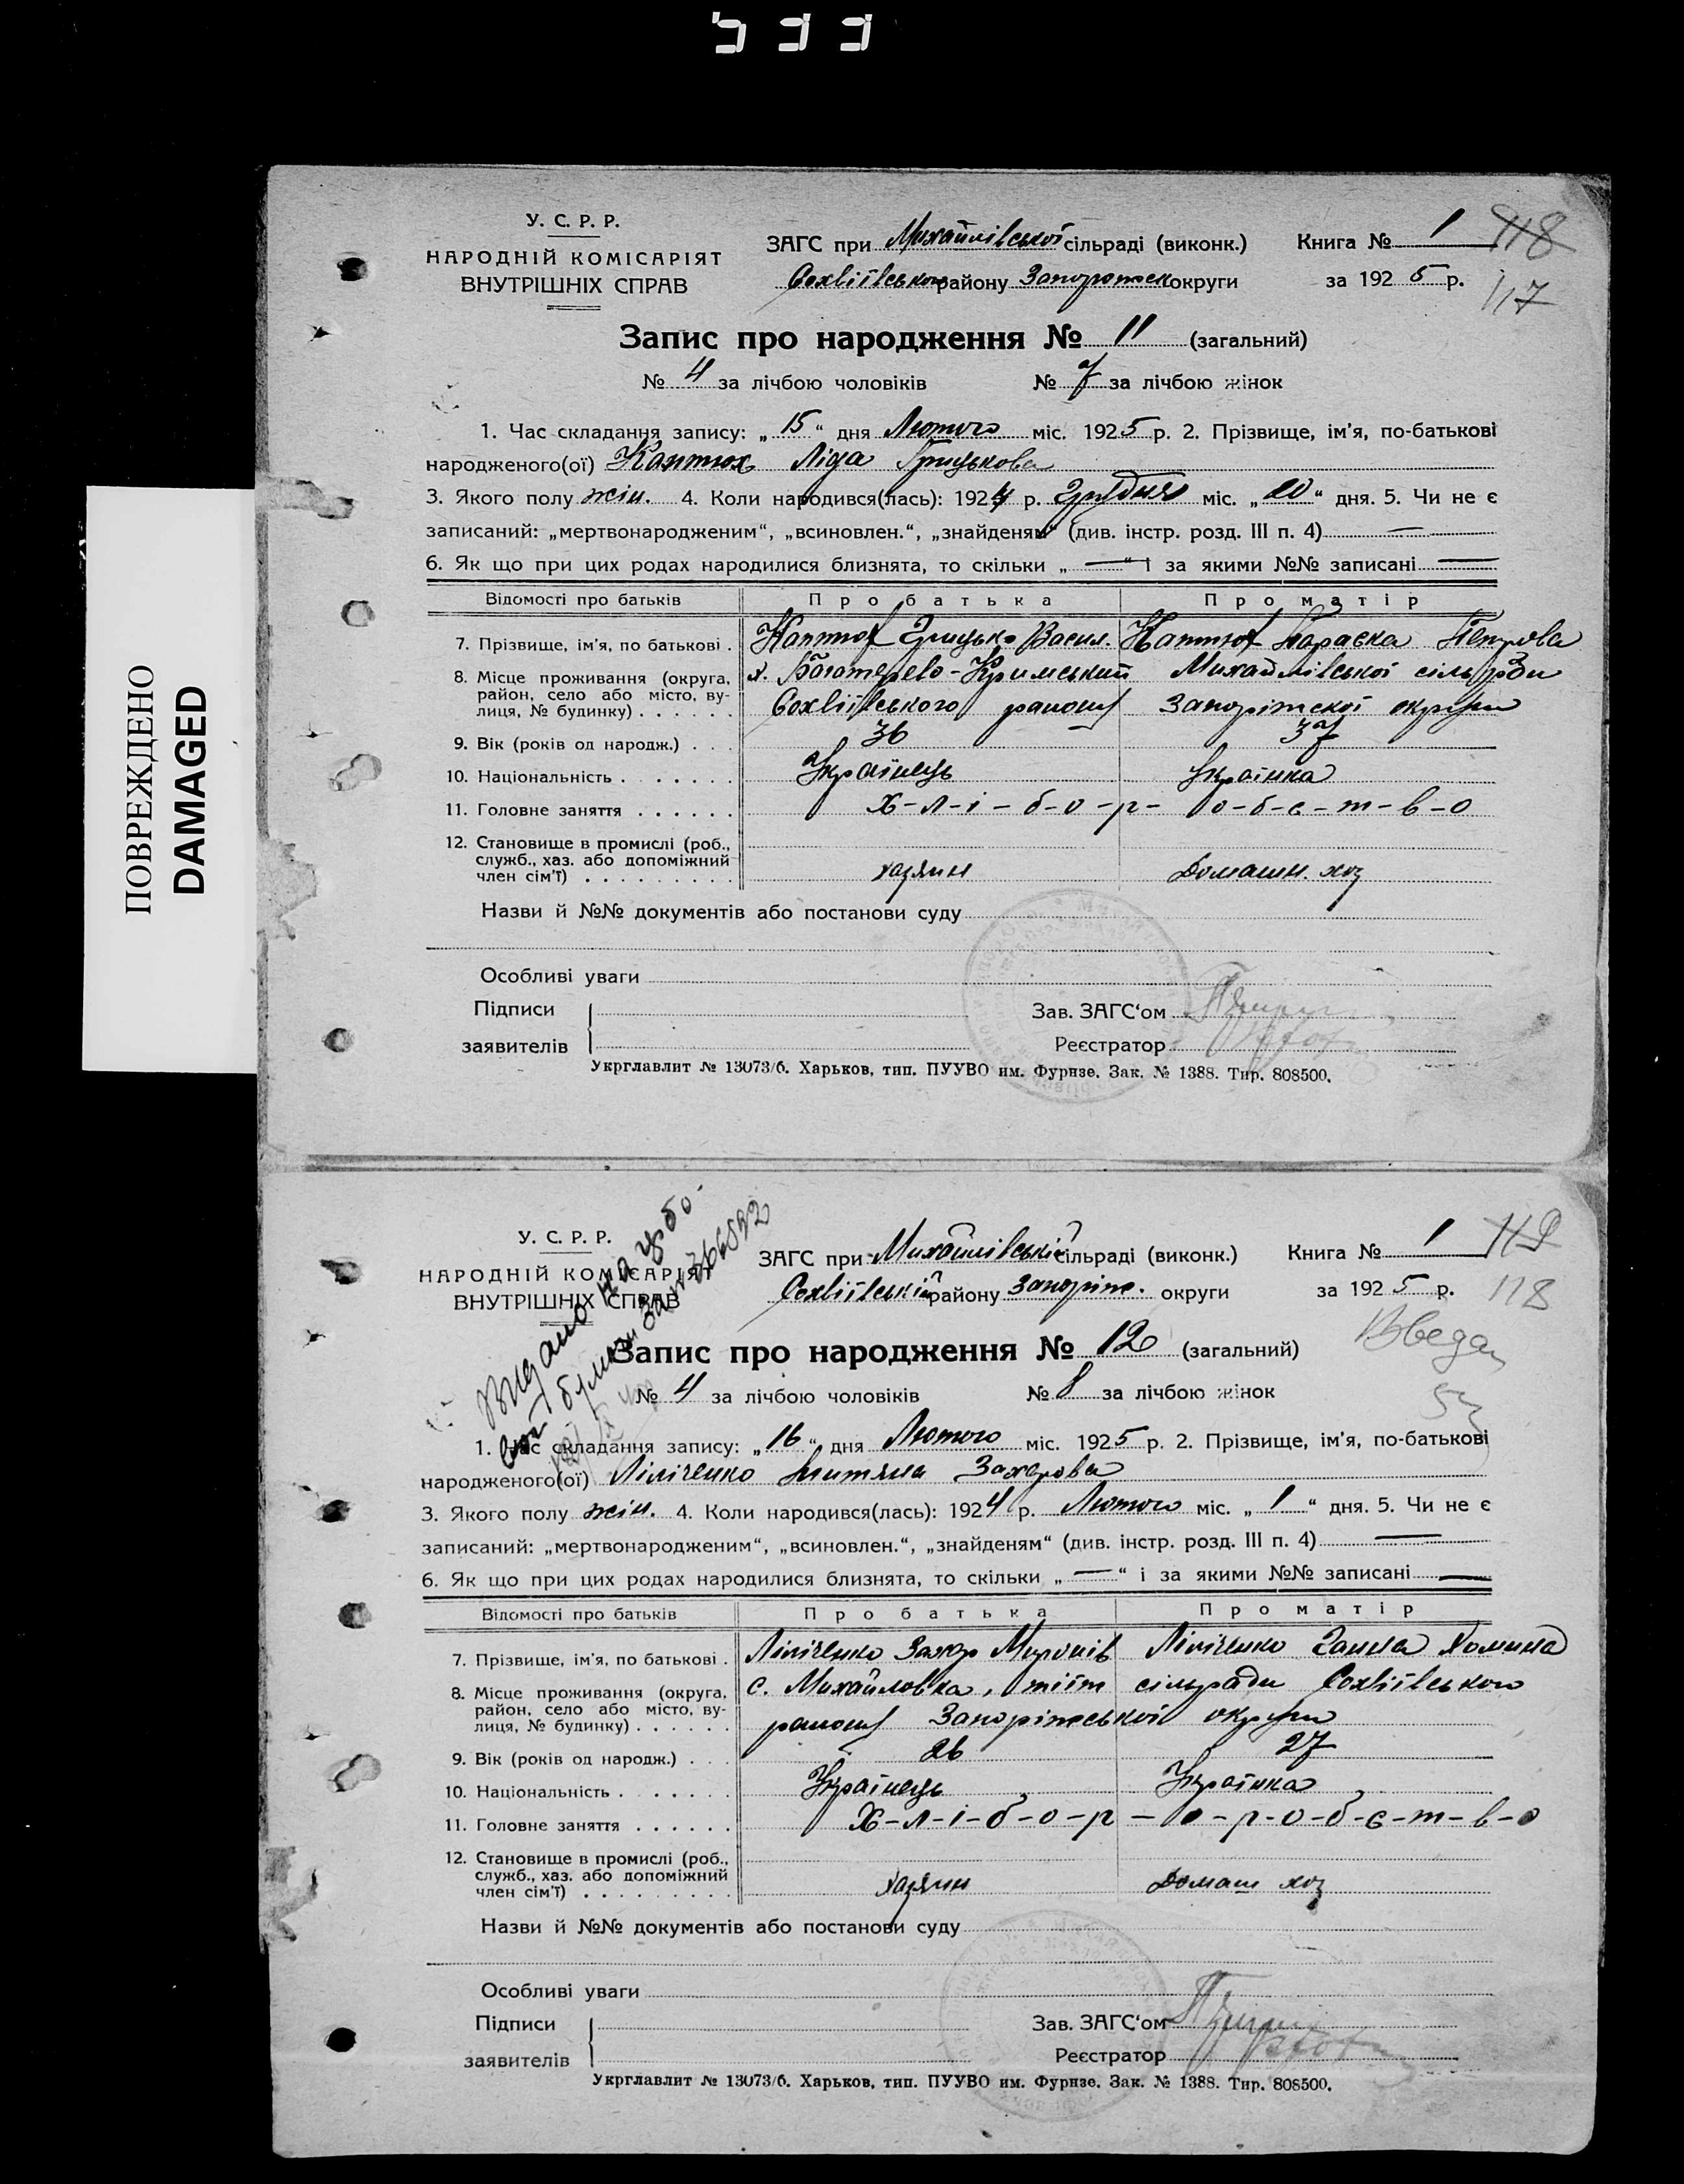 ПОВРЕЖДЕНО
DAMAGED
У. С. Р. Р.
НАРОДНІЙ КОМІСАРІЯТ
ВНУТРІШНІХ СПРАВ
ЗАГС при Михайлівської сільраді (виконк.)
Книга № 1
118
Софіївського району Запорожск округи
за 1925 р.
117
Запис про народження № 11 (загальний)
№ 4 за лічбою чоловіків № 7 за лічбою жінок
1. Час складання запису: „15“ дня Лютого міс. 1925 р. 2. Прізвище, ім'я, по-батькові
народженого(ої) Каптюх Ліда Грицькова
3. Якого полу жін. 4. Коли народився(лась): 1924 р. Грудня міс. „20“ дня. 5. Чи не є
записаний: „мертвонародженим“, „всиновлен.“, „знайденям“ (див. інстр. розд. III п. 4) —
6. Як що при цих родах народилися близнята, то скільки „—“ і за якими №№ записані —
Відомості про батьків Про батька Про матір
7. Прізвище, ім'я, по батькові . Каптюх Грицько Васил. Каптюх Параска Петрова
8. Місце проживання (округа, район, село або місто, вулиця, № будинку) . . . . . . х. -Кримський Михайлівської сільради
Софіївського району Запоріжскої округи
9. Вік (років од народж.) . . . 36 37
10. Національність . . . . . . . Українець Українка
11. Головне заняття . . . . . . Х-л-і-б-о-р-о-б-с-т-в-о
12. Становище в промислі (роб., служб., хаз. або допоміжний член сім'ї) . . . . . . . . . хазяин Домашн. хоз
Назви й №№ документів або постанови суду
Особливі уваги
Підписи
заявителів
Зав. ЗАГС'ом
Реєстратор
Укрглавлит № 13073/б. Харьков, тип. ПУУВО им. Фурнзе. Зак. № 1388. Тир. 808500.
У. С. Р. Р.
НАРОДНІЙ КОМІСАРІЯТ
ВНУТРІШНІХ СПРАВ
Видано на
ЗАГС при Михайлівській сільраді (виконк.)
Книга № 1
119
Софіївській району Запоріж. округи
за 1925 р.
118
Запис про народження № 12 (загальний)
№ 4 за лічбою чоловіків № 8 за лічбою жінок
1. Час складання запису: „16“ дня Лютого міс. 1925 р. 2. Прізвище, ім'я, по-батькові
народженого(ої) Лініченко Захарова
3. Якого полу жін. 4. Коли народився(лась): 1924 р. Лютого міс. „1“ дня. 5. Чи не є
записаний: „мертвонародженим“, „всиновлен.“, „знайденям“ (див. інстр. розд. III п. 4) —
6. Як що при цих родах народилися близнята, то скільки „—“ і за якими №№ записані —
Відомості про батьків Про батька Про матір
7. Прізвище, ім'я, по батькові . Лініченко Захар Миронів Лініченко Ганна Хомина
8. Місце проживання (округа, район, село або місто, вулиця, № будинку) . . . . . . с. Михайловка, тіїт сільради Софіївського
району Запоріжської округи
9. Вік (років од народж.) . . . 26 27
10. Національність . . . . . . . Українець Українка
11. Головне заняття . . . . . . Х-л-і-б-о-р-о-р-о-б-с-т-в-о
12. Становище в промислі (роб., служб., хаз. або допоміжний член сім'ї) . . . . . . . . . хазяин Домаш хоз
Назви й №№ документів або постанови суду
Особливі уваги
Підписи
заявителів
Зав. ЗАГС'ом
Реєстратор
Укрглавлит № 13073/б. Харьков, тип. ПУУВО им. Фурнзе. Зак. № 1388. Тир. 808500.